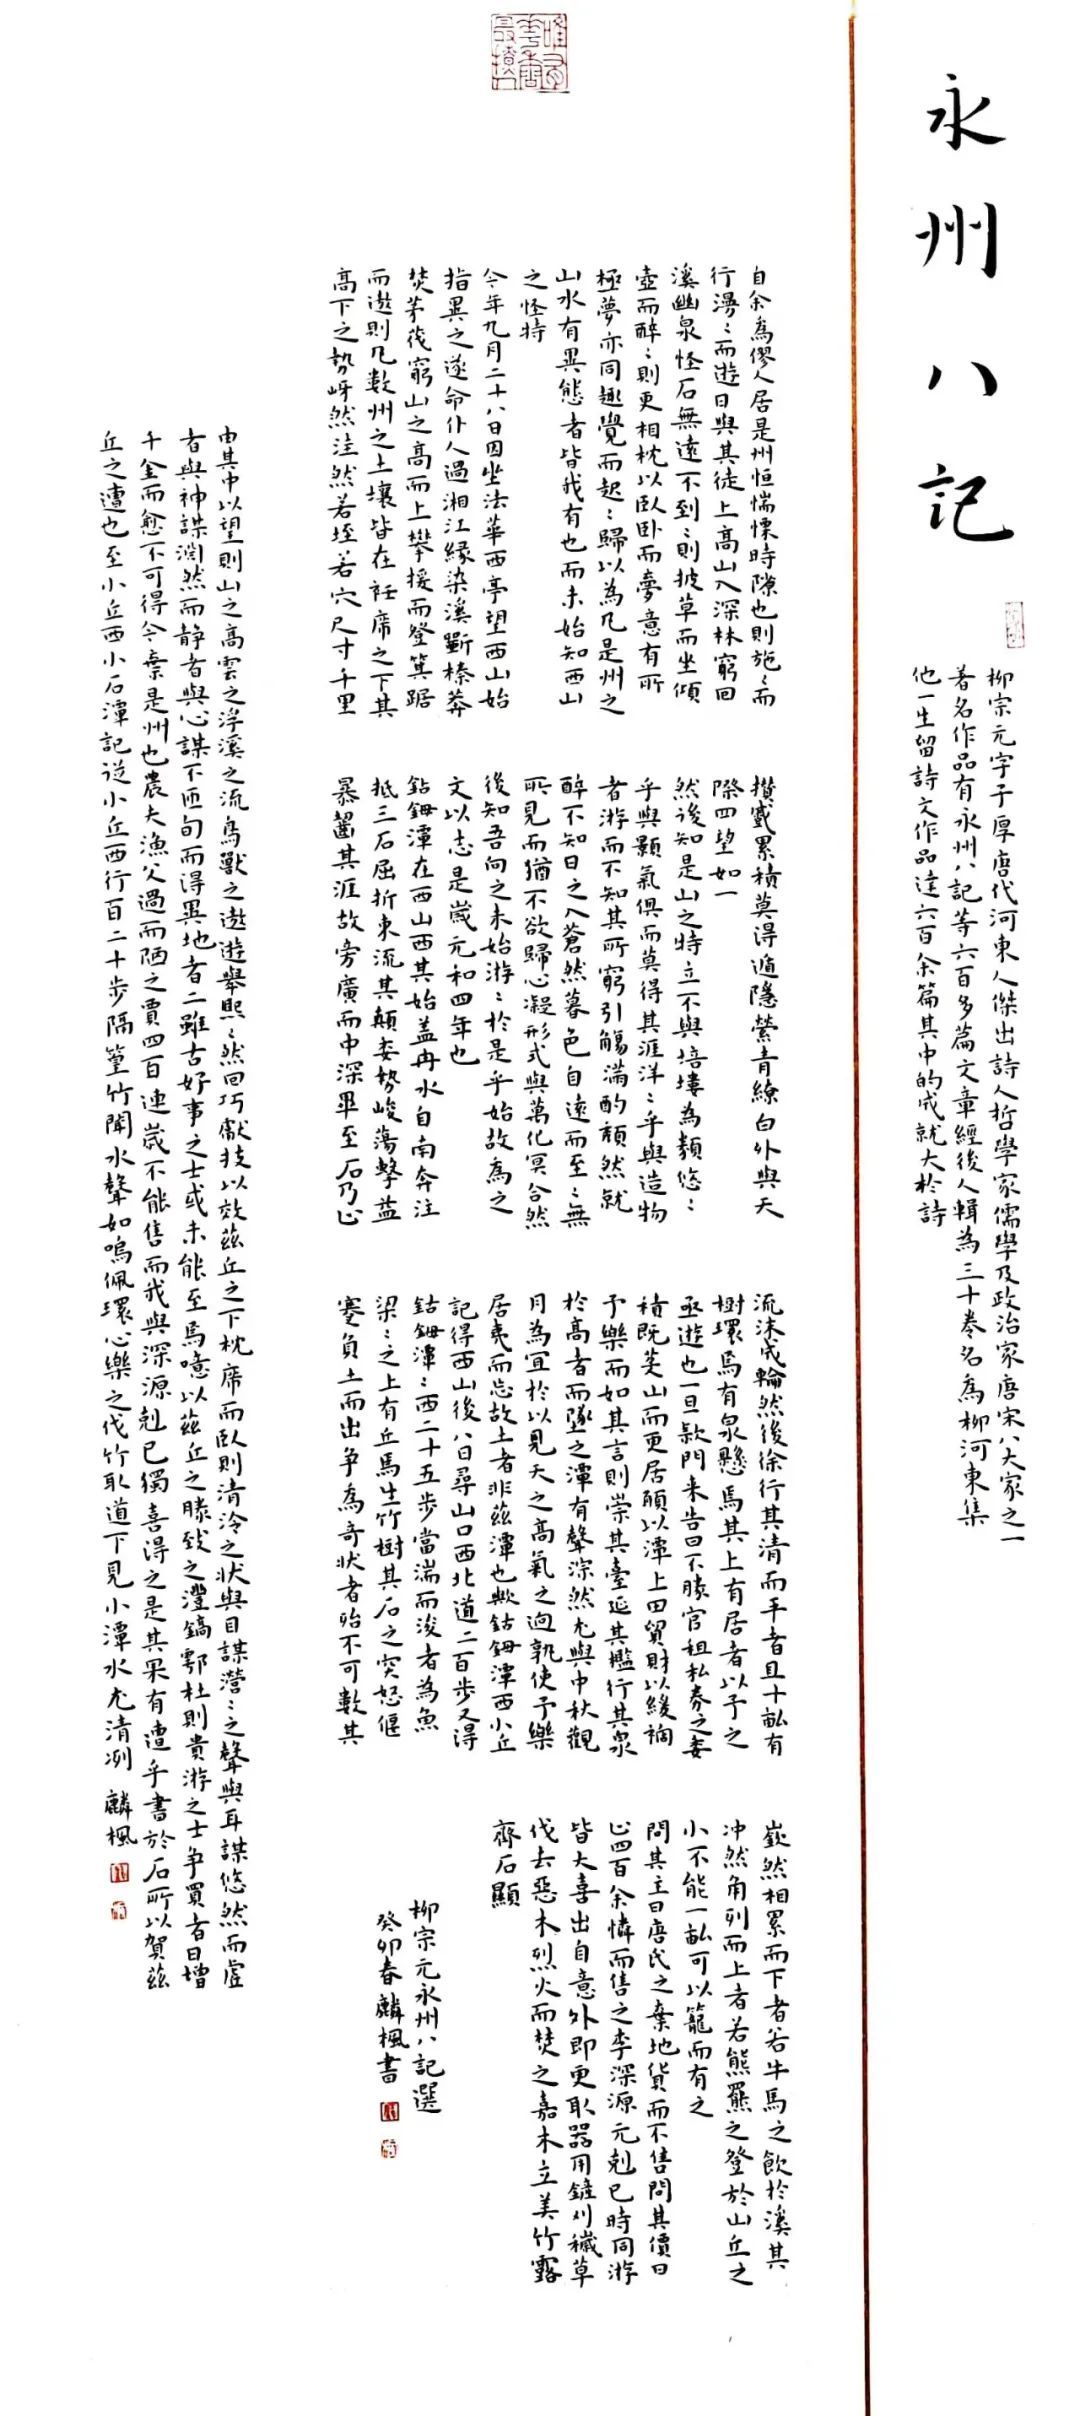 永州八記
柳宗元字子厚唐代河東人傑出詩人哲學家儒學及政治家唐宋八大家之一
著名作品有永州八記等六百多篇文章經後人輯為三十卷名為柳河東集
他一生留詩文作品達六百余篇其中的成就大於詩
自余為僇人居是州恒惴慄時隙也則施〻而
行漫〻而遊日與其徒上高山入深林窮回
溪幽泉怪石無遠不到〻則披草而坐傾
壺而醉〻則更相枕以臥臥而夢意有所
極夢亦同趣覺而起〻歸以為凡是州之
山水有異態者皆我有也而未始知西山
之怪特
今年九月二十八日因坐法華西亭望西山始
指異之遂命仆人過湘江緣染溪斲榛莽
焚茅茷窮山之高而上攀援而登箕踞
而遨則凡數州之土壤皆在衽席之下其
高下之勢岈然洼然若垤若穴尺寸千里
攢蹙累積莫得遁隱縈青繚白外與天
際四望如一
然後知是山之特立不與培塿為類悠〻
乎與顥氣俱而莫得其涯洋〻乎與造物
者游而不知其所窮引觴滿酌頹然就
醉不知日之入蒼然暮色自遠而至〻無
所見而猶不欲歸心凝形式與萬化冥合然
後知吾向之未始游〻於是乎始故為之
文以志是歲元和四年也
鈷鉧潭在西山西其始蓋冉水自南奔注
抵三石屈折東流其顛委勢峻蕩擊益
暴齧其涯故旁廣而中深畢至石乃止
流沫成輪然後徐行其清而平者且十畝有
樹環焉有泉懸焉其上有居者以予之
亟遊也一旦款門来告曰不勝官租私券之委
積既芟山而更居願以潭上田貿財以緩禍
予樂而如其言則崇其臺延其檻行其泉
於高者而墜之潭有聲淙然尤與中秋觀
月為宜於以見天之高氣之迥孰使予樂
居夷而忘故土者非茲潭也歟鈷鉧潭西小丘
記得西山後八日尋山口西北道二百步又得
鈷鉧潭〻西二十五步當湍而浚者為魚
梁〻之上有丘焉生竹樹其石之突怒偃
蹇負土而出爭為奇狀者殆不可數其
嶔然相累而下者若牛馬之飲於溪其
冲然角列而上者若熊羆之登於山丘之
小不能一畝可以籠而有之
問其主曰唐氏之棄地貨而不售問其價曰
止四百余憐而售之李深源元剋已時同游
皆大喜出自意外即更取器用鏟刈穢草
伐去惡木烈火而焚之嘉木立美竹露
齊石顯
柳宗元永州八記選
癸卯春麟楓書
由其中以望則山之高雲之浮溪之流鳥獸之遨遊舉熙〻然回巧獻技以效茲丘之下枕席而臥則清泠之狀與目謀瀯〻之聲與耳謀悠然而虛
者與神謀淵然而静者與心謀不匝旬而得異地者二雖古好事之士或未能至焉噫以茲丘之勝致之灃鎬鄠杜則貴游之士争買者日增
千金而愈不可得今棄是州也農夫漁父過而陋之賈四百連歲不能售而我與深源剋已獨喜得之是其果有遭乎書於石所以賀茲
丘之遭也至小丘西小石潭記從小丘西行百二十步隔篁竹聞水聲如鳴佩環心樂之伐竹取道下見小潭水尤清冽 麟楓